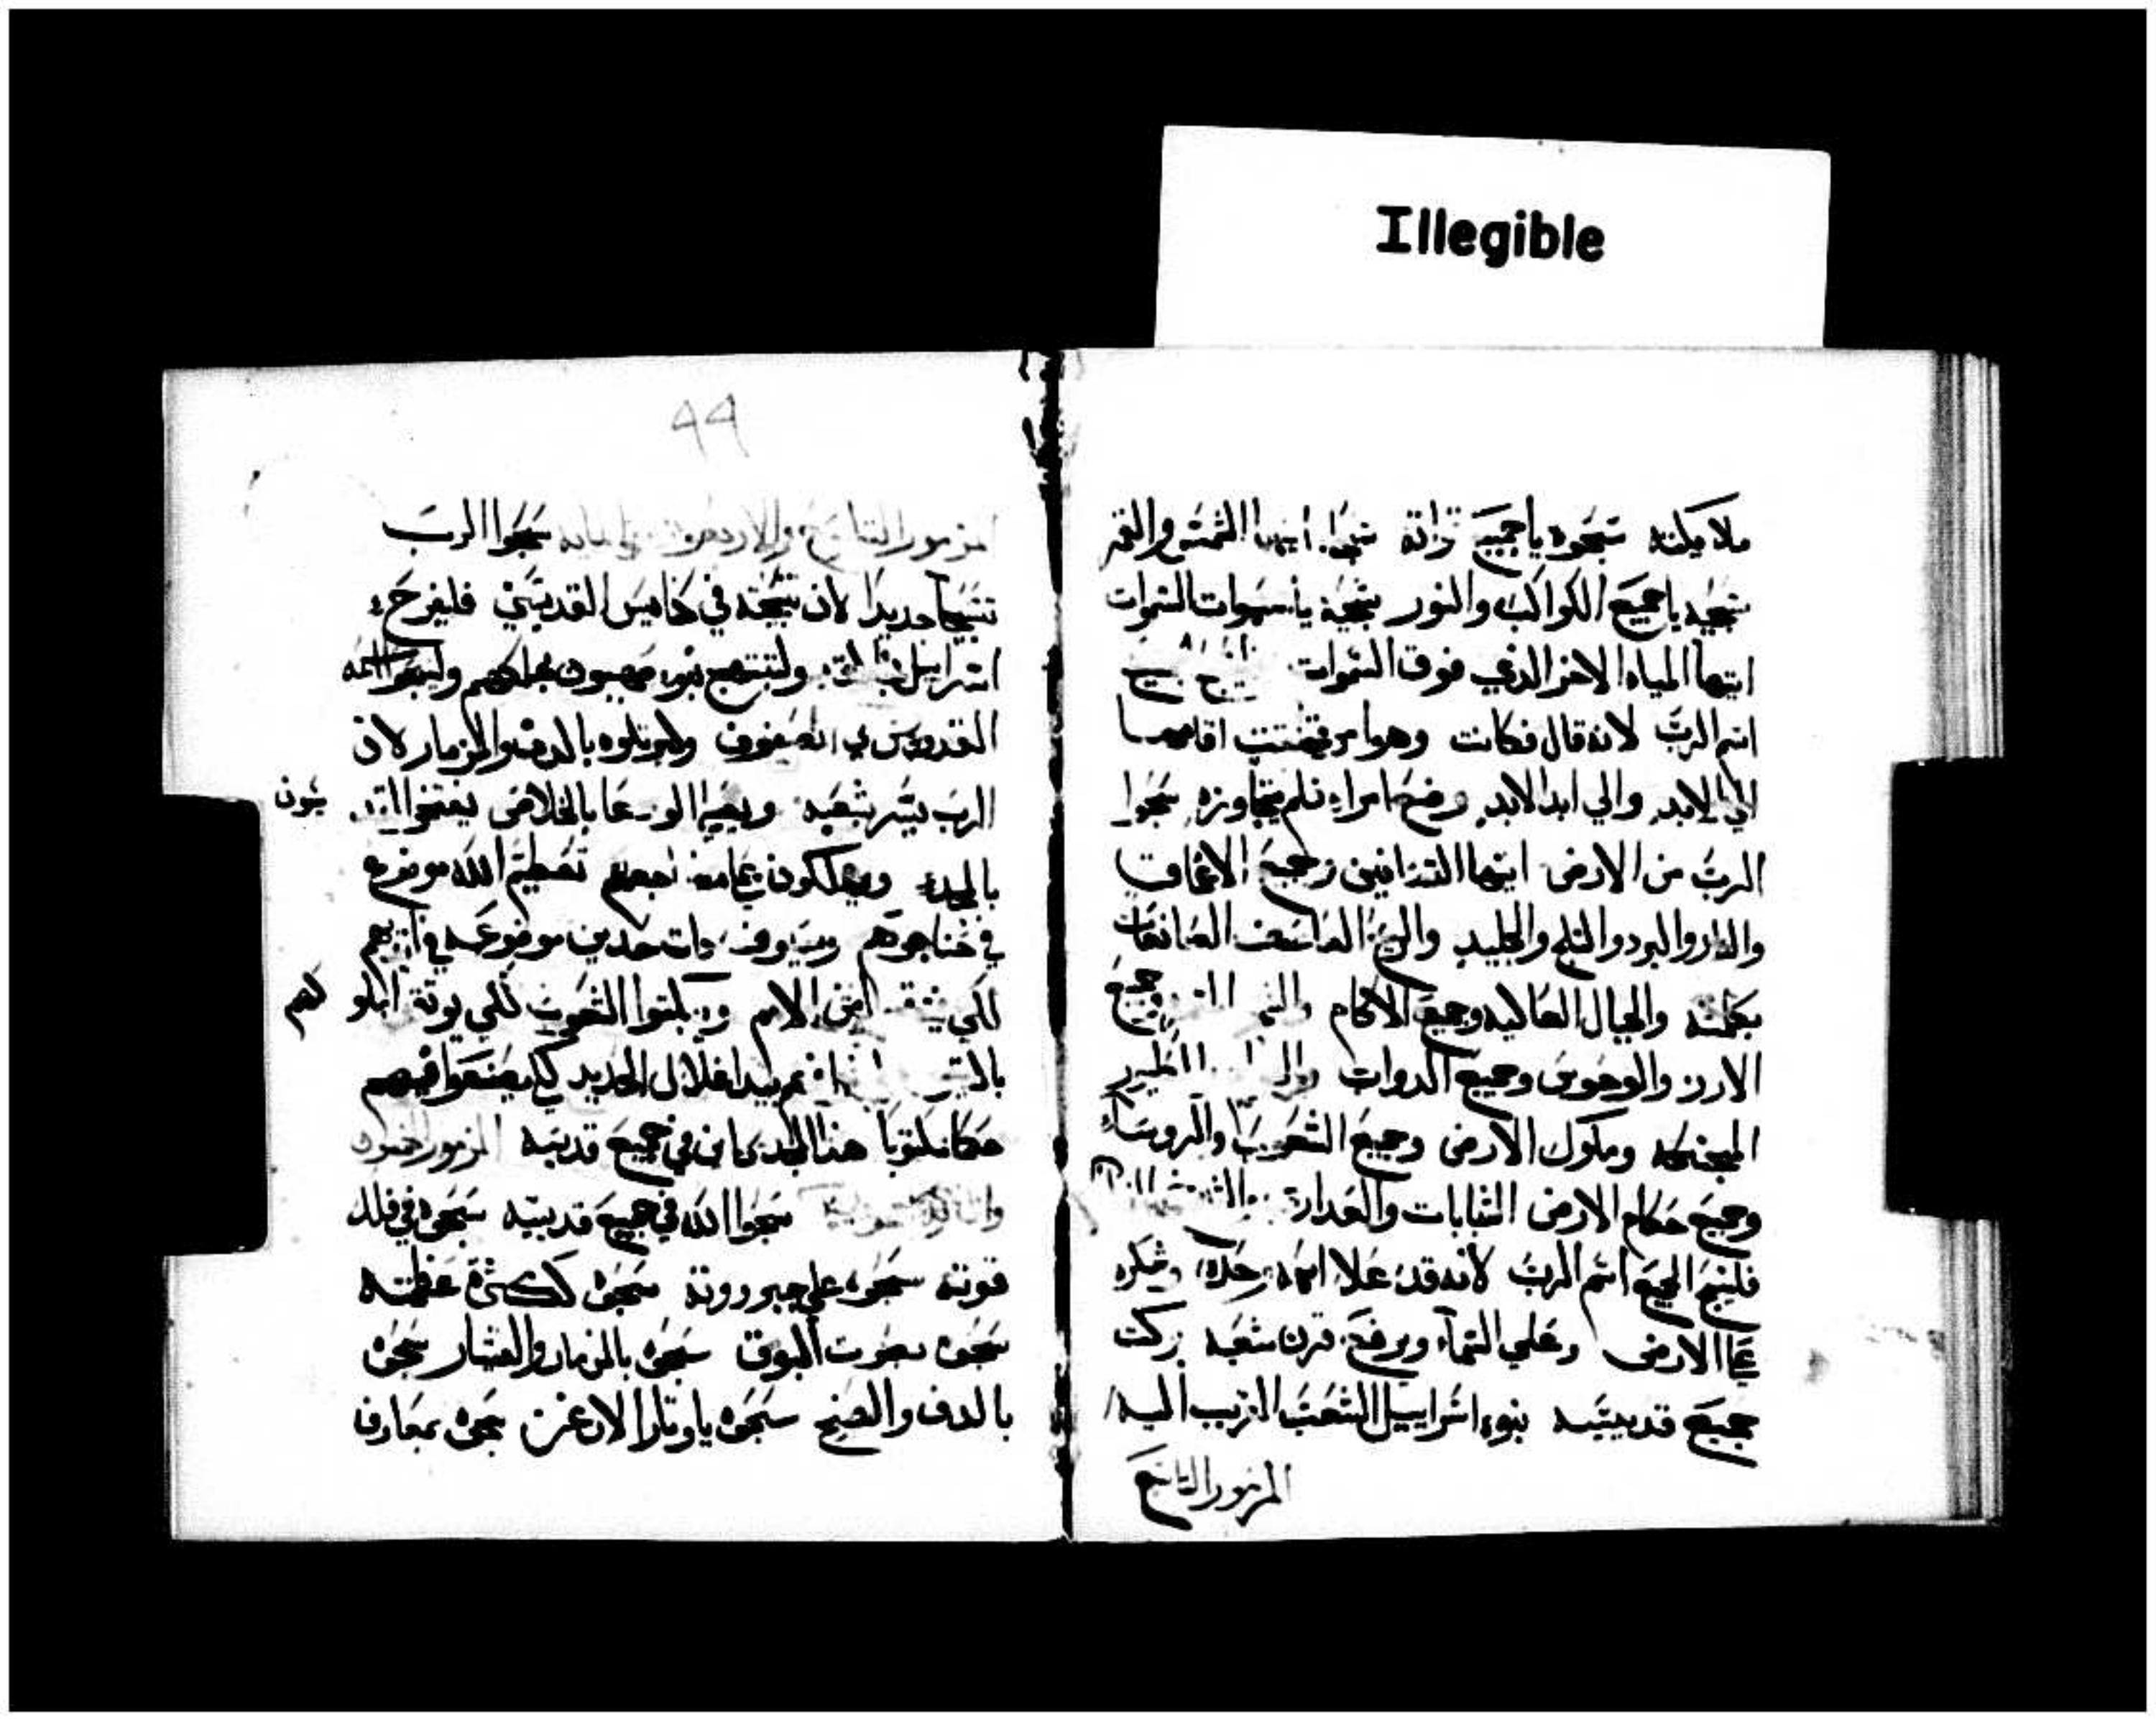 Illegible
ملايكته سبحوه ياجميع قواته سبحا ايتها الشمس والقمر
سبحيه ياجميع الكواكب والنور سبحيه ياسموات السموات
ايتها المياه الاخر الذي فوق السموات
اسم الرب لانه قال فكانت وهو امر فخلقت اقامهما
الي الابد والي ابد الابد وضع امرا فلم يتجاوزه سبحوا
الرب من الارض ايتها التنانين وجميع الاعماق
والنار والبرد والثلج والجليد والريح العاصف الصانعات
كلمته والجبال العاليه وجميع الاكام وجميع
الارز والوحوش وجميع الدواب الطير
المجنحه وملوك الارض وجميع الشعوب والروساء
وجميع حكام الارض الشابات والعداري
فليسبح الجميع اسم الرب لانه قد علا اسمه وحده وشكره
علي الارض وعلي السماء ويرفع قرن شعبه بركت
جميع قديسيه بنوا اسراييل الشعب القريب اليه
المزمور التاسع
99
المزمور التاسع والاربعون والمايه سبحوا الرب
تسبيحا جديدا لان تسبحته في كنايس القديسين فليفرح
اسراييل ولتبتهج بنو صهيون بملكهم وليسبحوا اسمه
القدوس في الصفوف وليرتلوه بالدف والمزمار لان
الرب يسر بشعبه ويعلي الودعا بالخلاص يفتخر
بالمجد ويتهللون علي مضاجعهم تعظيم الله موضوع
في حناجرهم وسيوف ذات حدين موضوعه في ايديهم
لكي الامم ويبكتوا الشعوب لكي يوثقوا
بالقيود اغلال الحديد لكي يصنعوا فيهم
حكما مكتوبا هذا المجد كاين في جميع قديسيه المزمور الخمسون
والمايه سبحوا الله في جميع قديسيه سبحوه في فلك
قوته سبحوه علي جبروته سبحوه ككثرة عظمته
سبحوه بصوت البوق سبحوه بالمزمار والقيثار سبحوه
بالدف والصنج سبحوه باوتار الارغن سبحوه بمعازف